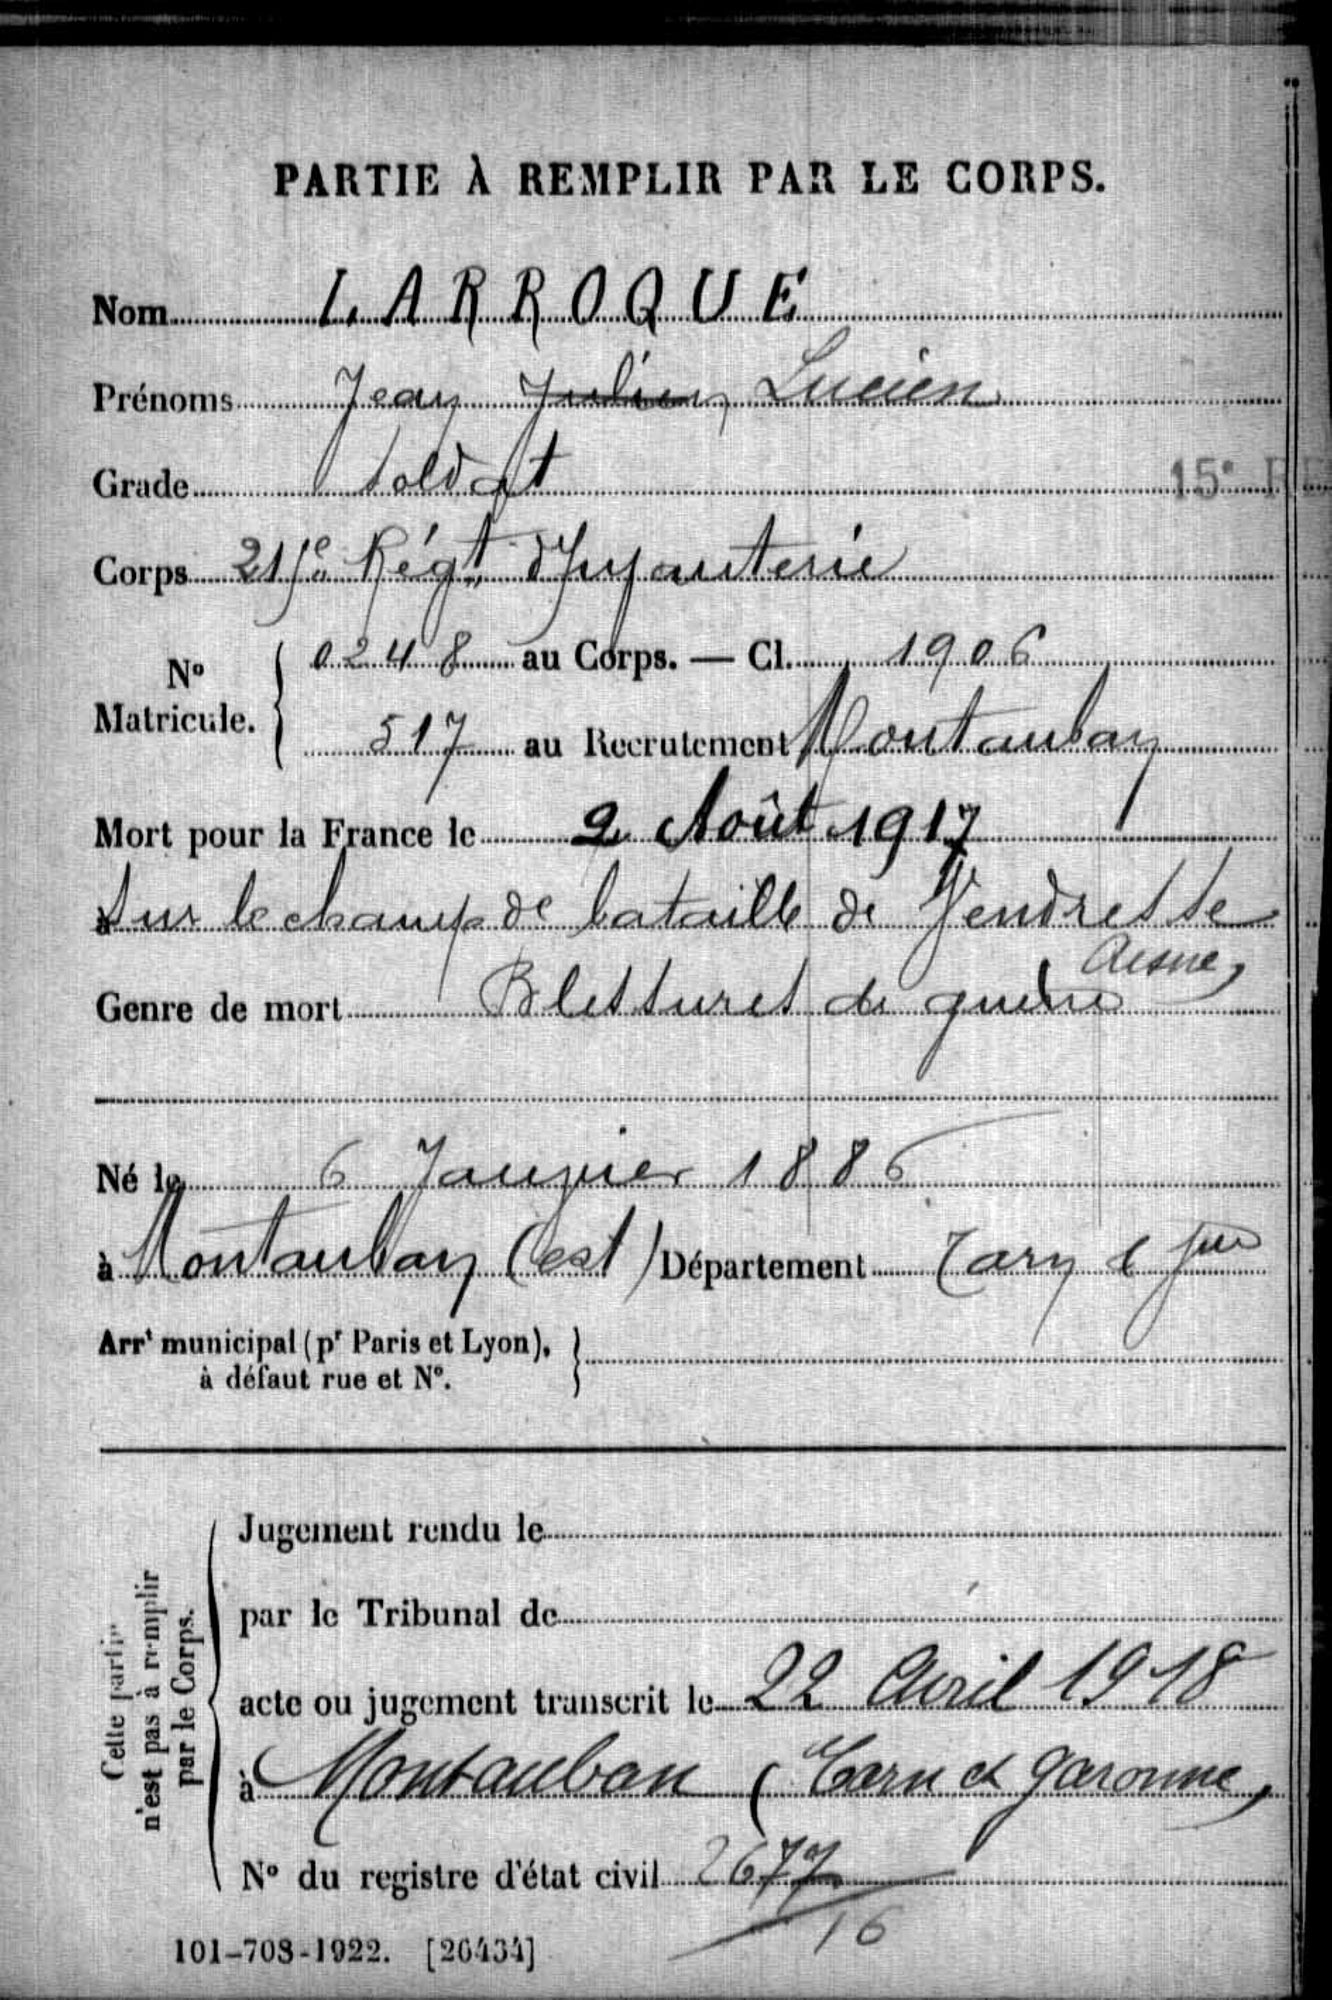 PARTIE À REMPLIR PAR LE CORPS.
Nom LARROQUE
Prénoms Jean Julien Lucien
Grade Soldat
15e RE
Corps 215e Régt d'Infanterie
No Matricule. 0248 au Corps. — Cl. 1906
517 au Recrutement Montauban
Mort pour la France le 2 Août 1917
à Sur le champ de bataille de Vendresse
Aisne
Genre de mort Blessures de guerre
Né le 6 Janvier 1886
à Montauban (est) Département Tarn & Gne
Arrt municipal (pr Paris et Lyon),
à défaut rue et No.
Cette partie
n'est pas à remplir
par le Corps.
Jugement rendu le
par le Tribunal de
acte ou jugement transcrit le 22 Avril 1918
à Montauban (Tarn et Garonne)
No du registre d'état civil 2677
16
101-708-1922. [26434]